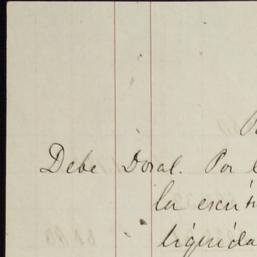 Debe Doral. Por
la escri
liquida